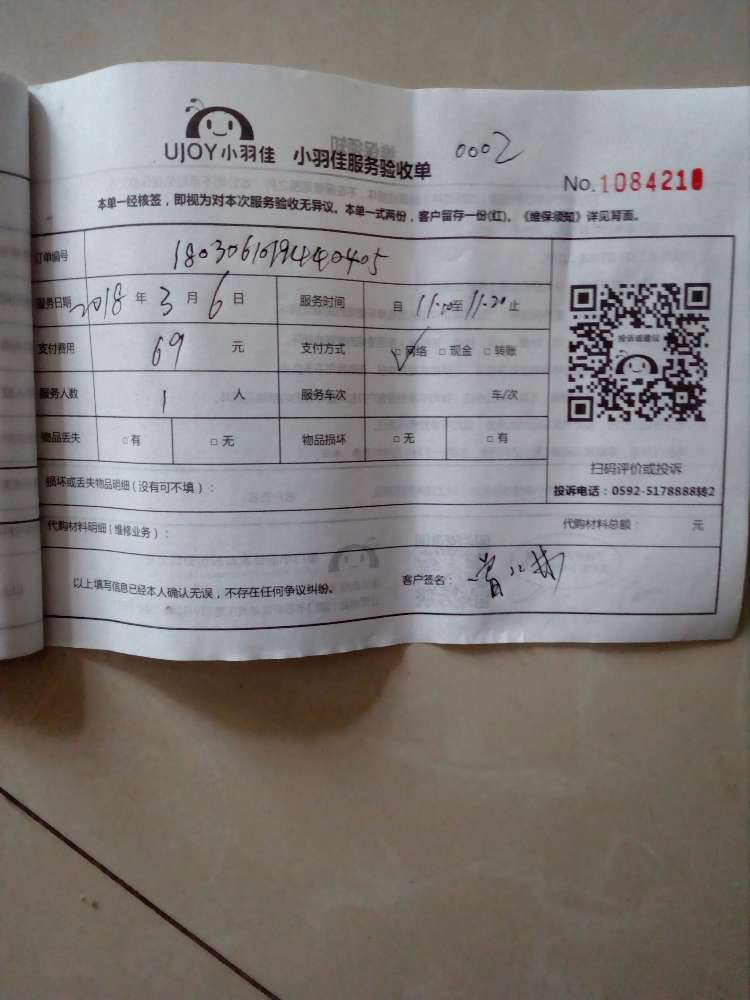 UJOY小羽佳 小羽佳服务验收单 0002
No.1084210
本单一经核签，即视为对本次服务验收无异议。本单一式两份，客户留存一份(红)。《维保须知》详见背面。
订单编号 18030610194440405
服务日期 2018 年 3 月 6 日 服务时间 自 11:00至11:20止
支付费用 69 元 支付方式 ☑网络 □现金 □转账
服务人数 1 人 服务车次 车/次
物品丢失 □有 □无 物品损坏 □无 □有
投诉或建议
扫码评价或投诉
投诉电话：0592-5178888转2
损坏或丢失物品明细（没有可不填）：
代购材料明细（维修业务）： 代购材料总额： 元
以上填写信息已经本人确认无误，不存在任何争议纠纷。 客户签名：